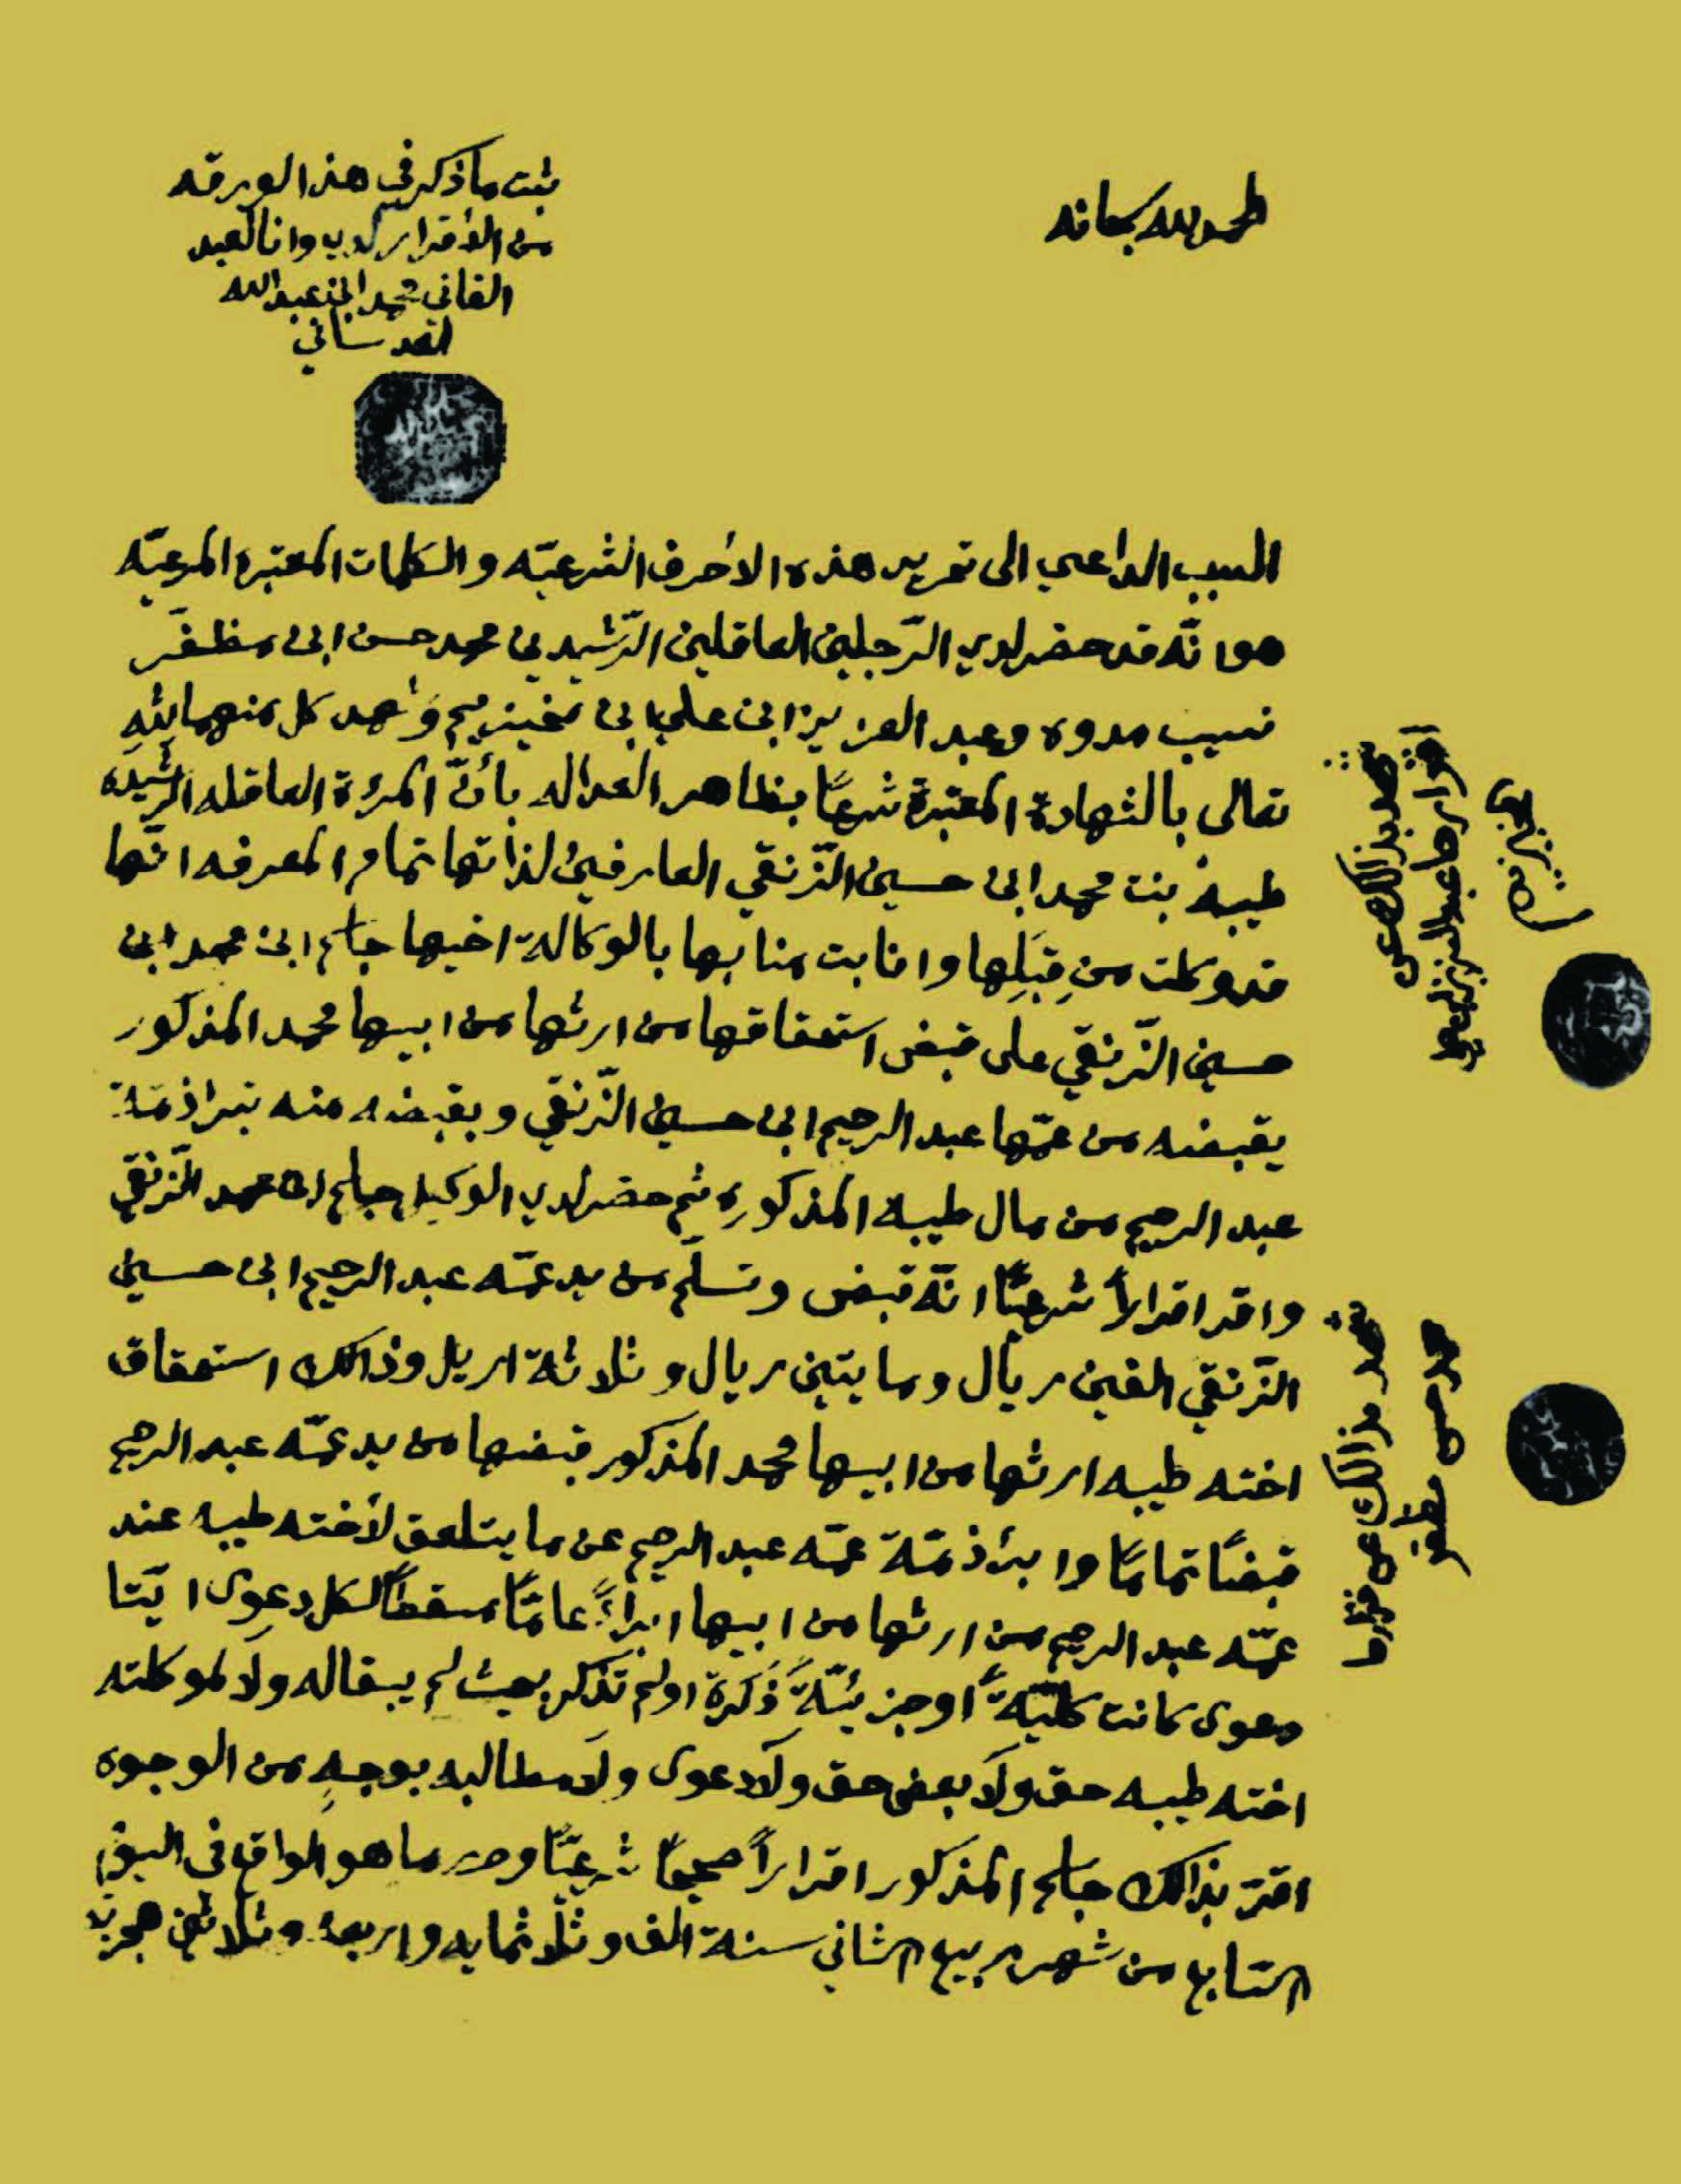 الحمد لله سبحانه
ثبت ما ذكر في هذا الورقه
من الأقرار لدي وانا العبد
الفاني محمد ابن عبد الله
العدساني
السبب الداعي الى تحرير هذه الاحرف الشرعيّه والكلمات المعتبره المرعيّه
هو انّه قد حضر لدي الرّجلين العاقلين الرّشيدين محمد حسن ابن مظفّر
نسيب مدوه وعبد العزيز ابن علي ابن مخيزيم وشهد كل منهما لله
تعالى بالشهادة المعتبرة شرعًا بظاهر العداله بأنّ المرءة العاقله الرشيده
طيبة بنت محمد ابن حسين التّرنقي العارفين لذاتها تمام المعرفه انّها
قد وكلت من قِبَلِها وانابت منابها بالوكالة اخيها جاسم ابن محمد ابن
حسين التّرنقي على قبض استحقاقها من ارثها من ابيها محمد المذكور
يقبضه من عمّها عبد الرحيم ابن حسين التّرنقي وبقبضه منه تبرا ذمّة
عبد الرحيم من مال طيبة المذكوره ثم حضر لدي الوكيل جاسم ابن محمد التّرنقي
واقر اقرارًا شرعيًّا انّه قبض وتسلّم من يد عمّه عبد الرحيم ابن حسين
التّرنقي الفين ريال ومايتين ريال وثلاثة اريل وذالك استحقاق
اخته طيبه ارثها من ابيها محمد المذكور قبضها من يد عمّه عبد الرحيم
قبضًا تمامًا وابرئ ذمّة عمّه عبد الرحيم عن ما يتلعق لأخته طيبه عند
عمّه عبد الرحيم من ارثها من ابيها ابراءً عامًّا مسقطًا لكل دعوى ايّتا
دعوى كانت كليّةً او جزئيّةً ذكرة او لم تذكر بحيث لم يبقا له ولا لموكلته
اخته طيبه حق ولا بعض حق ولا دعوى ولا مطالبه بوجهٍ من الوجوه
اقرّ بذالك جاسم المذكور اقرارًا صحيحًا شرعيًّا وحرر ما هو الواقع في اليوم
السّابع من شهر ربيع الثاني سنة الف وثلاثمايه واربعة وثلاثين هجريّه
شهد بذالك عن
اقراره عبد العزيز ابن علي
شهد بذالك عن اقراره
محمد حسن مظفر